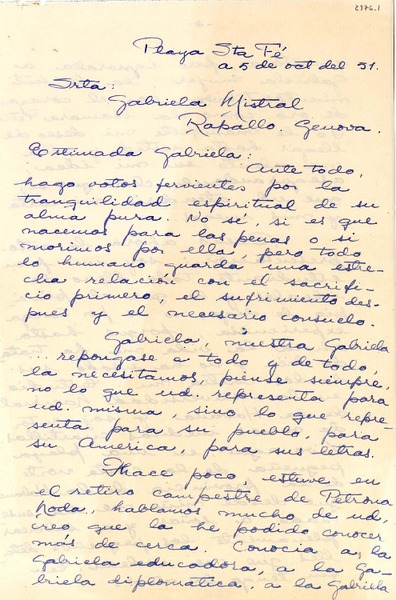 2976.1
Playa Sta Fé
a 5 de oct del 51.
Srta:
Gabriela Mistral
Rapallo. Genova.
Estimada Gabriela:
Ante todo,
hago votos fervientes por la
tranquilidad espiritual de su
alma pura. No sé, si es que
nacemos para las penas o si
morimos por ella, pero todo
lo humano guarda una estre-
cha relación con el sacrifi-
cio primero, el sufrimiento des-
pues y el necesario consuelo.
Gabriela, nuestra Gabriela
... repongase a todo y de todo,
la necesitamos, piense siempre,
no lo que ud. representa para
ud. misma, sino lo que repre-
senta para su pueblo, para
su America, para sus letras.
Hace poco, estuve en
el retiro campestre de Petrona
hoda, hablamos mucho de ud,
creo que la he podido conocer
más de cerca. Conocia a la
Gabriela educadora, a la Ga-
briela diplomatica, a la Gabriela